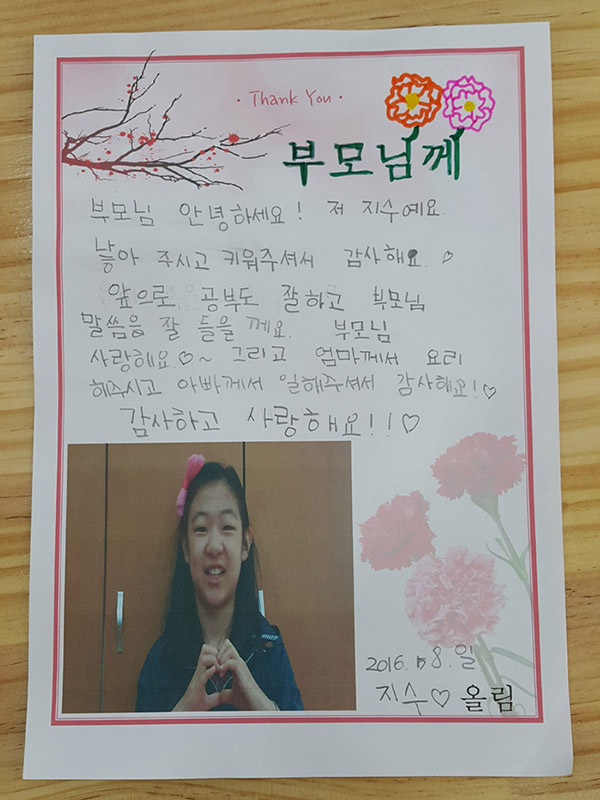 · Thank You ·
부모님께
부모님 안녕하세요! 저 지수예요.
낳아 주시고 키워주셔서 감사해요. ♡
앞으로 공부도 잘하고 부모님
말씀을 잘 들을 께요. 부모님
사랑해요.♡~ 그리고 엄마께서 요리
해주시고 아빠께서 일해주셔서 감사해요!♡
감사하고 사랑해요!!♡
2016. 8.일
지수♡ 올림